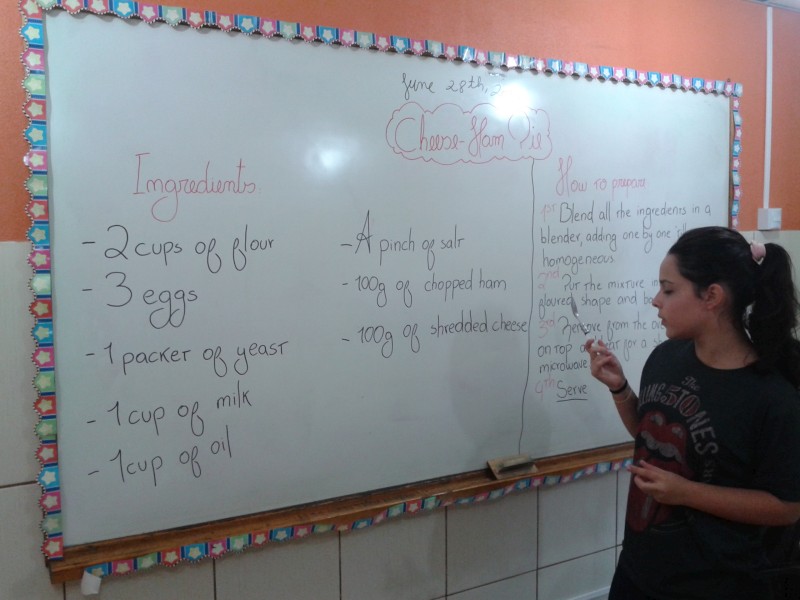 June 28th,
Cheese-Ham Pie
Ingredients
- 2 cups of flour
- 3 eggs
- 1 packet of yeast
- 1 cup of milk
- 1 cup of oil
- A pinch of salt
- 100g of chopped ham
- 100g of shredded cheese
How to prepare
1st Blend all the ingredients in a
blender, adding one by one
homogeneous
2nd Put the mixture in
floured shape and
3rd Remove from the
on top for a
microwave
4th Serve
The
ROLLING STONES